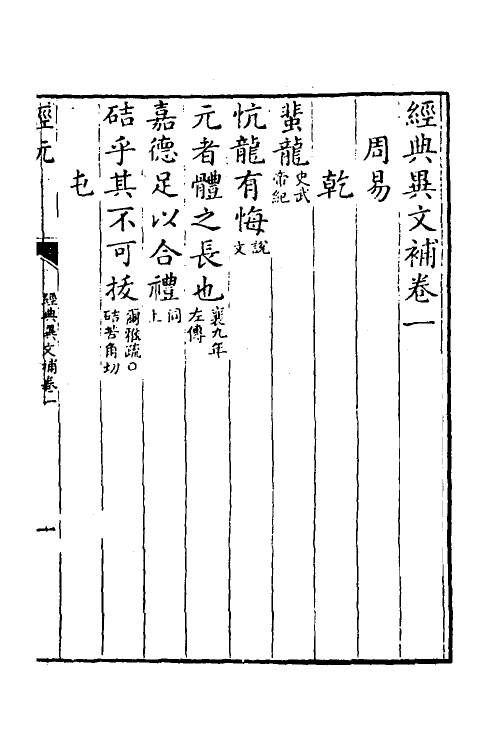 經典異文補卷一
周易
乾
蜚龍史武帝紀
忼龍有悔說文
元者體之長也襄九年左傳
嘉德足以合禮同上
硞乎其不可拔爾雅疏○硞苦角切
屯
經元 經典異文補卷一 一